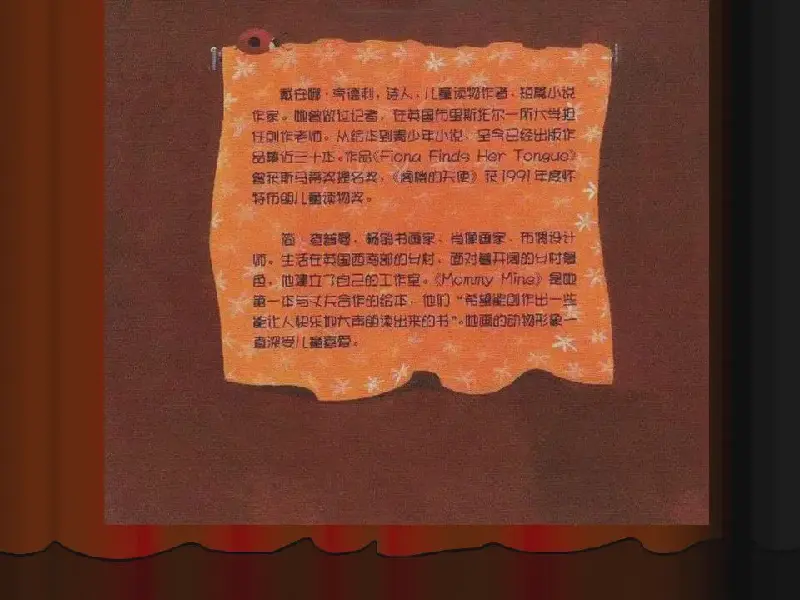 戴安娜·亨德利，诗人，儿童读物作者，短篇小说
作家。她曾做过记者，在英国布里斯托尔一所大学担
任创作老师。从绘本到青少年小说，至今已经出版作
品集近三十本。作品《Fiona Finds Her Tongue》
曾获斯马蒂奖提名奖，《阁楼的天使》获1991年度怀
特布朗儿童读物奖。
简·查普曼，畅销书画家、肖像画家、布偶设计
师。生活在英国西南部的乡村，面对着开阔的乡村景
色，她建立了自己的工作室。《Mommy Mine》是她
第一本与丈夫合作的绘本，他们“希望能创作出一些
能让人快乐地大声朗读出来的书”。她画的动物形象一
直深受儿童喜爱。